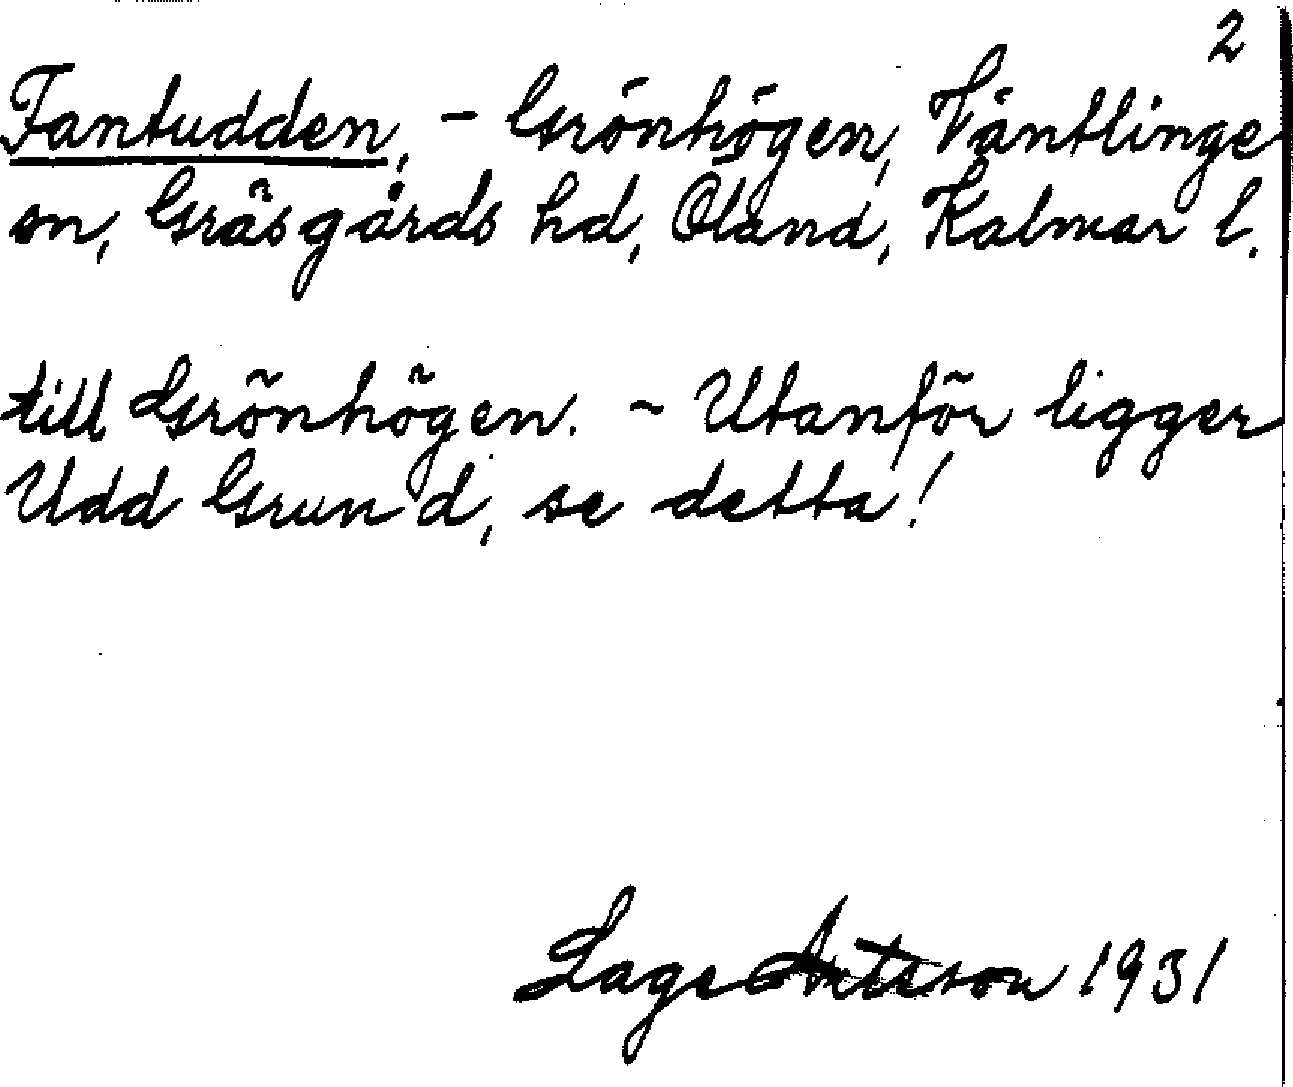 2
Fantudden, - Grönhögen, Väntlinge
sn, Gräsgårds hd, Öland, Kalmar l.
till Grönhögen. - Utanför ligger
Udd Grund, se detta!
Lage 1931